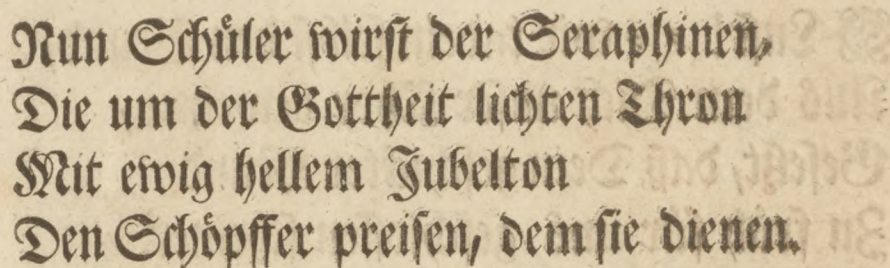 Nun Schüler wirst der Seraphinen,
Die um der Gottheit lichten Thron
Mit ewig hellem Jubelton
Den Schöpffer preisen, dem sie dienen.